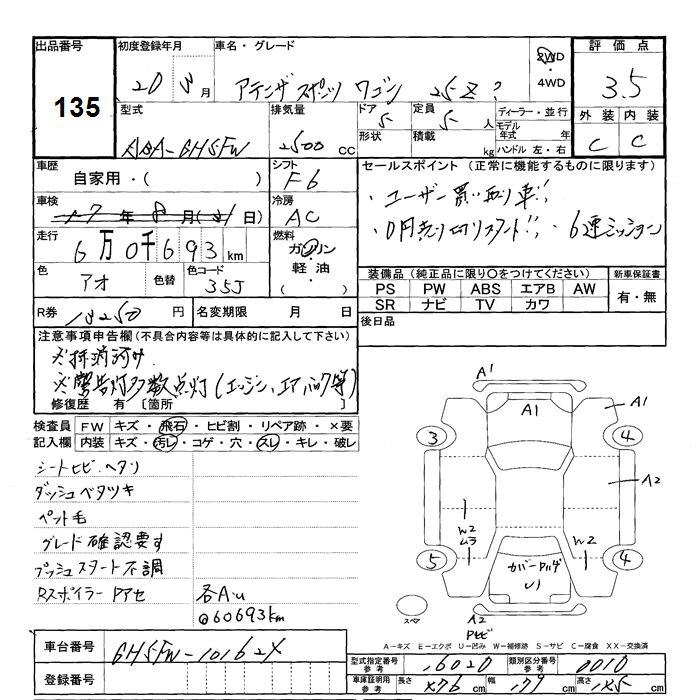 出品番号 初度登録年月 車名・グレード 2WD 4WD 評価点
135 20 月 アテンザスポーツ ワゴン 25Z? 3.5
型式 排気量 ドア 定員 ディーラー・並行 外装 内装
2500 cc 5 5 人 モデル年式 年式 C C
形状 積載 kg ハンドル 左・右
車歴 シフト セールスポイント (正常に機能するものに限ります)
自家用・( ) F6
・ユーザー買い取り車!!
車検 冷房
年 8 月( 日) AC
・0円売り切りスタート!!、6速ミッション
走行 燃料
6万0千693km ガソリン・軽油・( )
色 色替 色コード 装備品(純正品に限り〇をつけてください) 新車保証書
アオ 35J PS PW ABS エアB AW 有・無
SR ナビ TV カワ
R券 円 名変期限 月 日 後日品
注意事項申告欄(不具合内容等は具体的に記入して下さい)
※警告灯多数点灯(エンジン、エアバック等)
修復歴 有 [箇所 ]
検査員 FW キズ・飛石・ヒビ割・リペア跡・×要
記入欄 内装 キズ・汚レ・コゲ・穴・スレ・キレ・破レ
シートヒビ、ヘタリ
ダッシュベタツキ
ペット毛
グレード確認要す
プッシュスタート不調
Rスポイラー アセ
各AU
@60693km
A1
A1
A1
3
4
A2
W2
ムラ
W2
5
4
スペア
A2
A-キズ E-エクボ U-凹み W-補修跡 S-サビ C-腐食 XX-交換済
車台番号
登録番号
型式指定番号 参考 16020 類別区分番号 参考 0010
車庫証明用 参考 長さ 476 cm 幅 179 cm 高さ cm